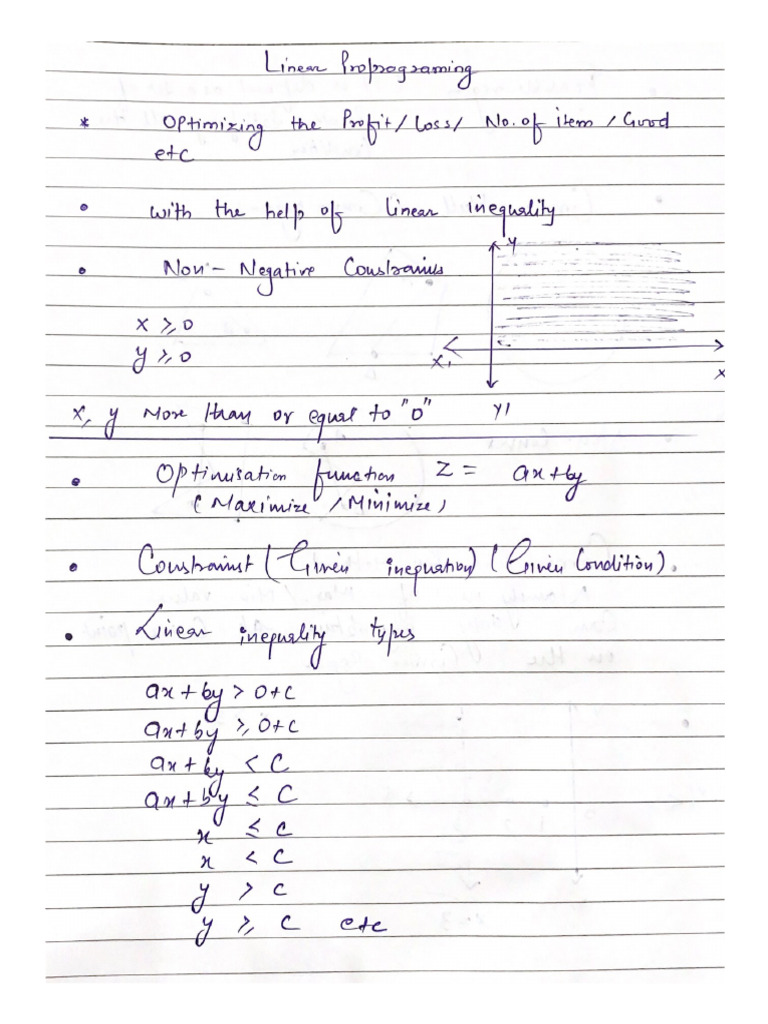 Linear Proprograming
* Optimizing the Profit/Loss/ No. of item / Good
etc
• with the help of linear inequality
• Non-Negative Constrainis
y
x ⩾ 0
y ⩾ 0
x'
x
x, y More than or equal to "0"
y'
• Optimisation function Z = ax+by
( Maximize / Minimize )
• Constrainst ( Given inequation) ( Given Condition).
• Linear inequality types
ax + by > 0+c
ax+ by ⩾ 0+c
ax + by < C
ax + by ≤ C
x ≤ C
x < C
y > C
y ⩾ C etc